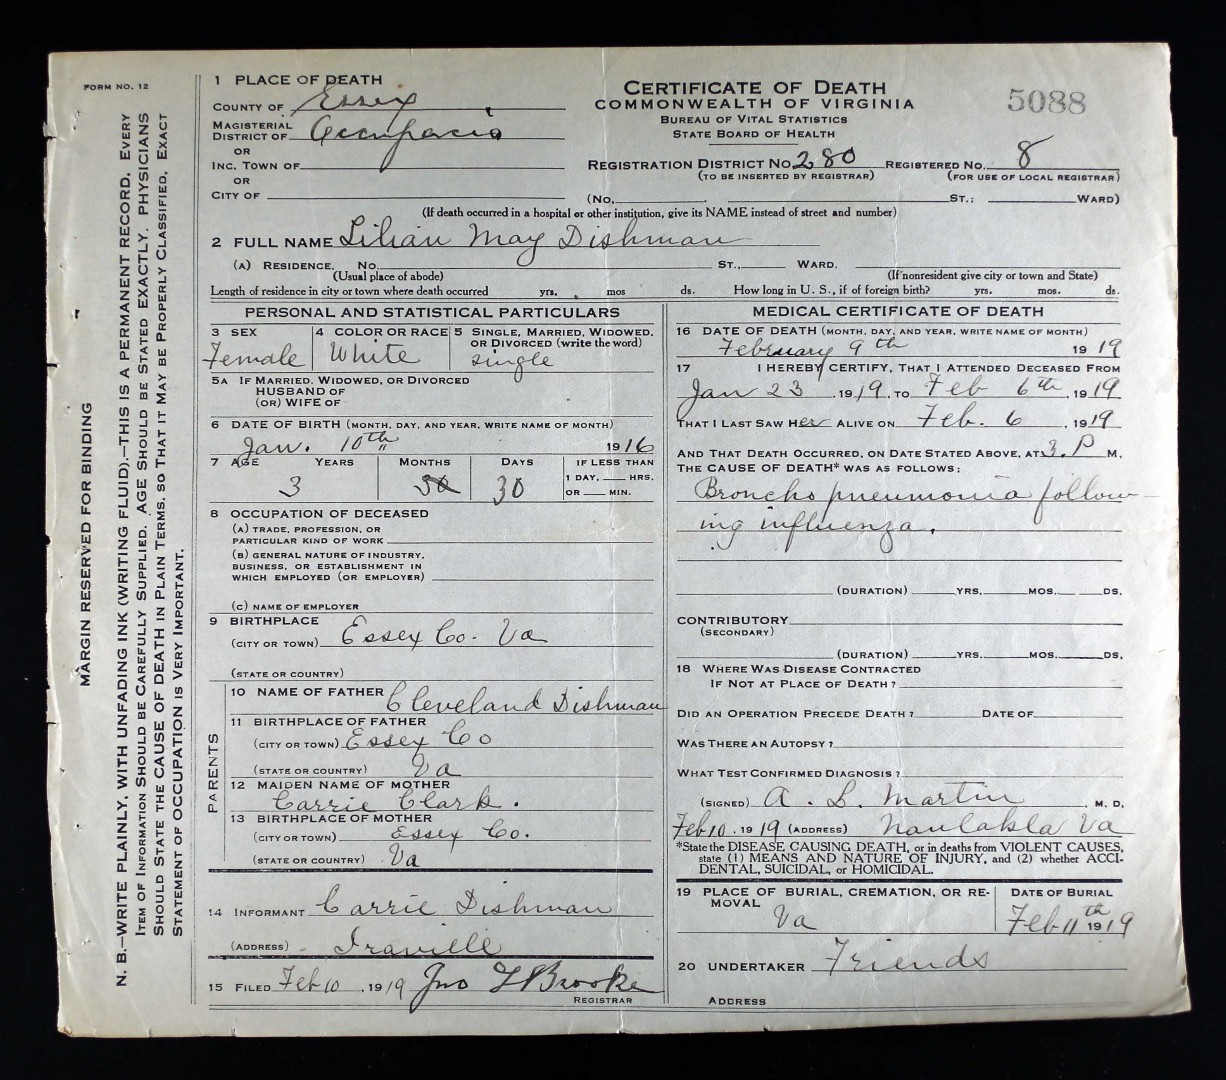 FORM NO. 12
MARGIN RESERVED FOR BINDING
N. B.—WRITE PLAINLY, WITH UNFADING INK (WRITING FLUID).—THIS IS A PERMANENT RECORD. EVERY
ITEM OF INFORMATION SHOULD BE CAREFULLY SUPPLIED. AGE SHOULD BE STATED EXACTLY. PHYSICIANS
SHOULD STATE THE CAUSE OF DEATH IN PLAIN TERMS, SO THAT IT MAY BE PROPERLY CLASSIFIED. EXACT
STATEMENT OF OCCUPATION IS VERY IMPORTANT.
1 PLACE OF DEATH
COUNTY OF Essex
MAGISTERIAL
DISTRICT OF Occupacia
OR
INC. TOWN OF
OR
CITY OF
CERTIFICATE OF DEATH
COMMONWEALTH OF VIRGINIA
BUREAU OF VITAL STATISTICS
STATE BOARD OF HEALTH
5088
REGISTRATION DISTRICT NO. 280 REGISTERED NO. 8
(TO BE INSERTED BY REGISTRAR) (FOR USE OF LOCAL REGISTRAR)
(NO, ST.; WARD)
(If death occurred in a hospital or other institution, give its NAME instead of street and number)
2 FULL NAME Lilian May Dishman
(A) RESIDENCE. NO. ST., WARD.
(Usual place of abode) (If nonresident give city or town and State)
Length of residence in city or town where death occurred yrs. mos ds. How long in U. S., if of foreign birth? yrs. mos. ds.
PERSONAL AND STATISTICAL PARTICULARS
3 SEX 4 COLOR OR RACE 5 SINGLE, MARRIED, WIDOWED,
OR DIVORCED (write the word)
Female White single
5A IF MARRIED, WIDOWED, OR DIVORCED
HUSBAND OF
(OR) WIFE OF
6 DATE OF BIRTH (MONTH, DAY, AND YEAR, WRITE NAME OF MONTH)
Jan. 10th 1916
7 AGE YEARS MONTHS DAYS IF LESS THAN
1 DAY, HRS.
OR MIN.
3 30
8 OCCUPATION OF DECEASED
(A) TRADE, PROFESSION, OR
PARTICULAR KIND OF WORK
(B) GENERAL NATURE OF INDUSTRY,
BUSINESS, OR ESTABLISHMENT IN
WHICH EMPLOYED (OR EMPLOYER)
(C) NAME OF EMPLOYER
9 BIRTHPLACE
(CITY OR TOWN) Essex Co. Va
(STATE OR COUNTRY)
PARENTS
10 NAME OF FATHER Cleveland Dishman
11 BIRTHPLACE OF FATHER
(CITY OR TOWN) Essex Co
(STATE OR COUNTRY) Va
12 MAIDEN NAME OF MOTHER
Carrie Clark.
13 BIRTHPLACE OF MOTHER
(CITY OR TOWN) Essex Co.
(STATE OR COUNTRY) Va
14 INFORMANT Carrie Dishman
(ADDRESS) Iraville
15 FILED Feb 10, 1919 Jno Brooke
REGISTRAR
MEDICAL CERTIFICATE OF DEATH
16 DATE OF DEATH (MONTH, DAY, AND YEAR, WRITE NAME OF MONTH)
February 9th 1919
17 I HEREBY CERTIFY, THAT I ATTENDED DECEASED FROM
Jan 23, 1919, TO Feb 6th, 1919
THAT I LAST SAW Her ALIVE ON Feb. 6, 1919
AND THAT DEATH OCCURRED, ON DATE STATED ABOVE, AT 3. P M.
THE CAUSE OF DEATH* WAS AS FOLLOWS:
Broncho pneumonia follow-
ing influenza.
(DURATION) YRS. MOS. DS.
CONTRIBUTORY
(SECONDARY)
(DURATION) YRS. MOS. DS.
18 WHERE WAS DISEASE CONTRACTED
IF NOT AT PLACE OF DEATH?
DID AN OPERATION PRECEDE DEATH? DATE OF
WAS THERE AN AUTOPSY?
WHAT TEST CONFIRMED DIAGNOSIS?
(SIGNED) A. S. Martin, M. D.
Feb 10, 1919 (ADDRESS) Naulakla Va
*State the DISEASE CAUSING DEATH, or in deaths from VIOLENT CAUSES,
state (1) MEANS AND NATURE OF INJURY, and (2) whether ACCI-
DENTAL, SUICIDAL, or HOMICIDAL.
19 PLACE OF BURIAL, CREMATION, OR RE-
MOVAL
Va
DATE OF BURIAL
Feb 11th 1919
20 UNDERTAKER Friends
ADDRESS